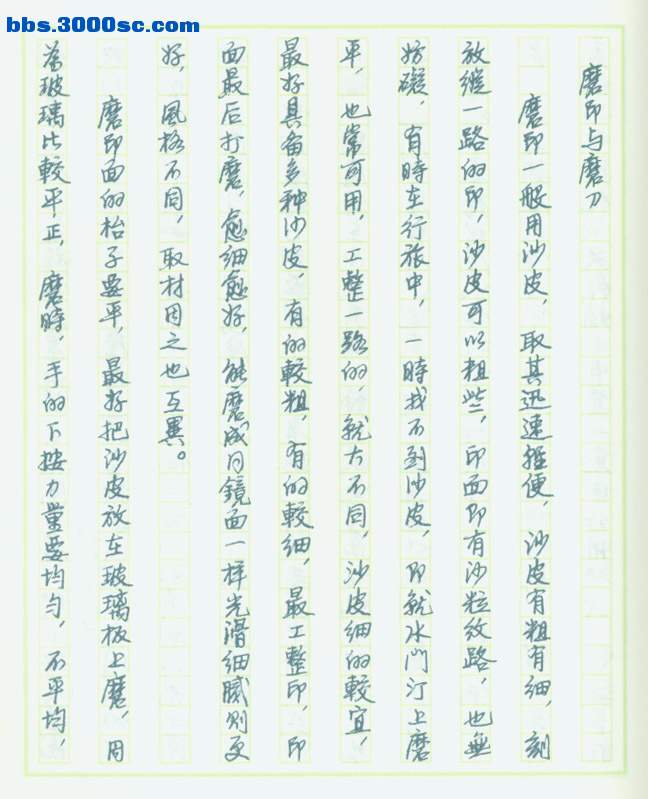 bbs.3000sc.com
磨印与磨刀
磨印一般用沙皮，取其迅速轻便，沙皮有粗有细，刻
放纵一路的印，沙皮可以粗些，印面即有沙粒纹路，也無
妨礙，有時在行旅中，一時找不到沙皮，即就水门汀上磨
平，也常可用，工整一路的，就大不同，沙皮细的較宜，
最好具备多种沙皮，有的較粗，有的較细，最工整印，印
面最后打磨，愈细愈好，能磨成月鏡面一样光滑细腻则更
好，風格不同，取材用之也互異。
磨印面的枱子要平，最好把沙皮放在玻璃板上磨，因
为玻璃比較平正，磨時，手的下按力量要均匀，不平均，